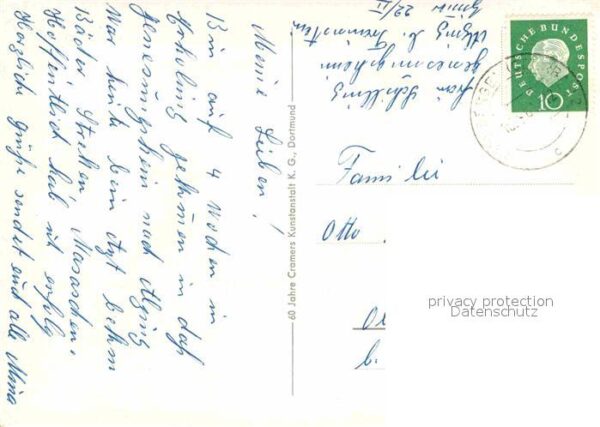 Meine Lieben!
Bin auf 4 Wochen in
Erholung gekommen in das
Genesungsheim nach Aging
War heute beim Arzt bekom
Bäder Strecken Masaschen.
Hoffentlich hab ich erfolg
Herzliche Grüße sendet euch alle Mina
60 Jahre Cramers Kunstanstalt K. G., Dortmund
Frau Schilling
genesungsheim
22/II
DEUTSCHE BUNDESPOST
10
Familie
Otto
b.
privacy protection
Datenschutz